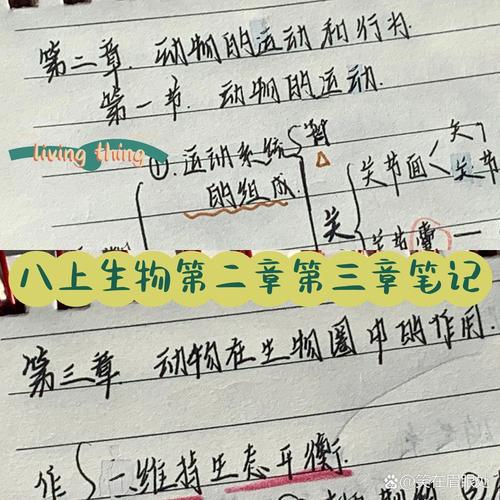 第二章. 动物的运动和行为
第一节. 动物的运动.
living thing
①.运动系统
的组成.
关
关节面
关节
八上生物第二章第三章笔记
第三章. 动物在生物圈中的作用.
作
一.维持生态平衡.
@笑在眉眼处